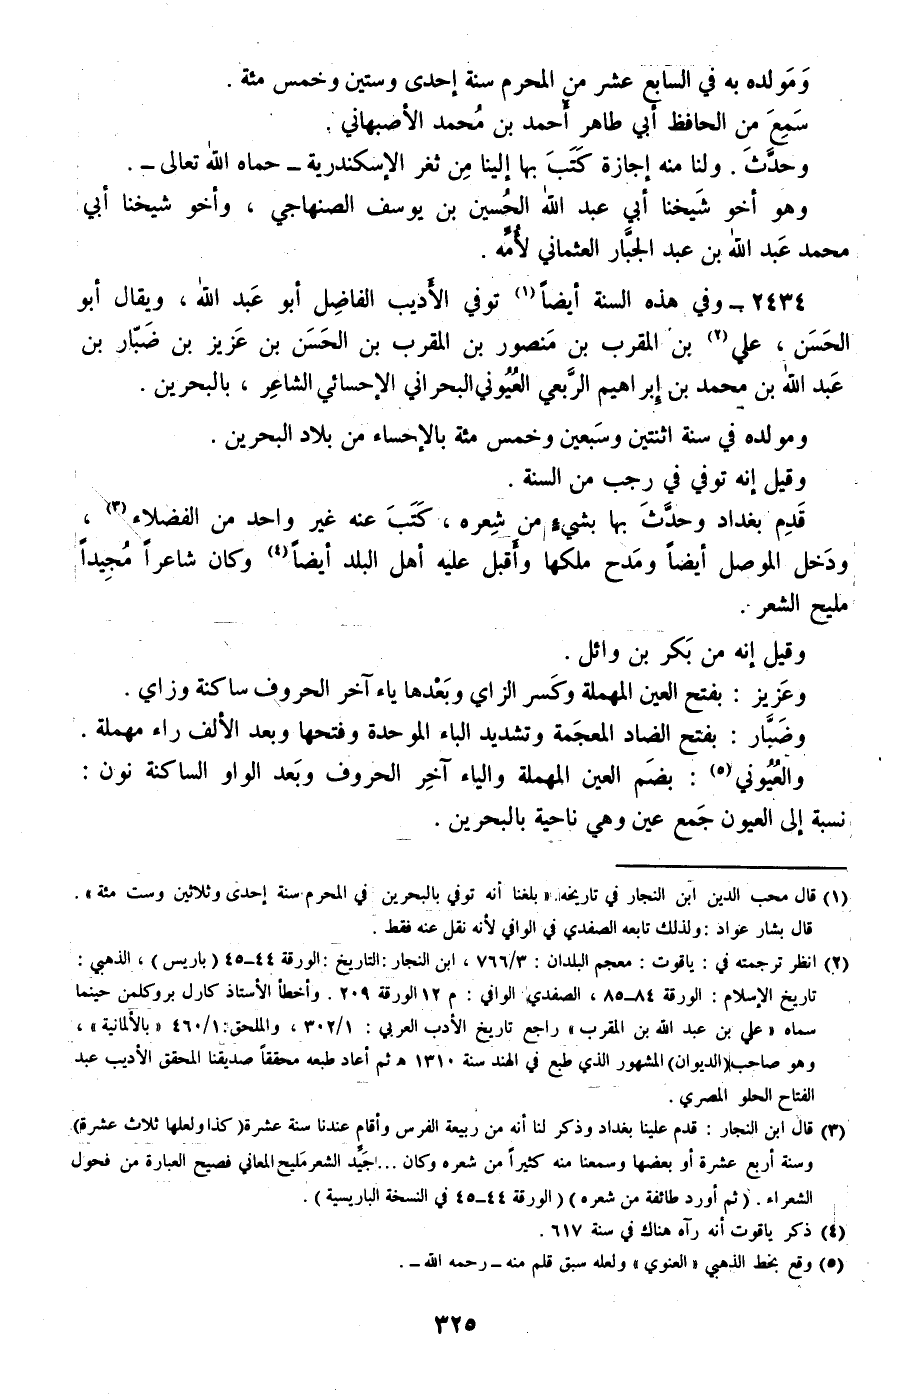 وَمَولده به في السابع عشر من المحرم سنة إحدى وستين وخمس مئة .
سَمِعَ من الحافظ أبي طاهر أَحمد بن مُحمد الأصبهاني .
وحدَّثَ . ولنا منه إجازة كَتَبَ بها إلينا مِن ثغر الإسكندرية ــ حماه الله تعالى ــ .
وهو أخو شَيخنا أبي عبد الله الحُسين بن يوسف الصنهاجي ، وأخو شيخنا أبي
محمد عَبد الله بن عبد الجبَّار العثماني لأُمّه .
٢٤٣٤ ــ وفي هذه السنة أيضاً (١) توفي الأَديب الفاضِل أبو عَبد الله ، ويقال أبو
الحَسَن ، علي (٢) بن المقرب بن مَنصور بن المقرب بن الحَسَن بن عَزيز بن ضَبّار بن
عَبد الله بن محمد بن إِبراهيم الرَّبعي العُيُوني البحراني الإحسائي الشاعِر ، بالبحرين .
ومولده في سنة اثنتين وسَبعين وخمس مئة بالإحساء من بلاد البحرين .
وقيل إنه توفي في رجب من السنة .
قَدِم بغداد وحدَّثَ بها بشيءٍ من شِعره ، كَتَبَ عنه غير واحد من الفضلاء (٣) ،
ودَخل الموصل أيضاً ومَدح ملكها وأَقبل عليه أهل البلد أيضاً (٤) وكان شاعراً مُجيداً
مليح الشعر .
وقيل إنه من بَكر بن وائل .
وعَزيز : بفتح العين المهملة وكَسر الزاي وبَعْدها ياء آخر الحروف ساكنة وزاي .
وضَبَّار : بفتح الضاد المعجَمة وتشديد الباء الموحدة وفتحها وبعد الألف راء مهملة .
والعُيُوني (٥) : بضَم العين المهملة والياء آخِر الحروف وبَعد الواو الساكنة نون :
نسبة إلى العيون جَمع عين وهي ناحية بالبحرين .
(١) قال محب الدين ابن النجار في تاريخه « بلغنا أنه توفي بالبحرين في المحرم سنة إحدى وثلاثين وست مئة » .
قال بشار عواد : ولذلك تابعه الصفدي في الوافي لأنه نقل عنه فقط .
(٢) انظر ترجمته في : ياقوت : معجم البلدان : ٧٦٦/٣ ، ابن النجار : التاريخ : الورقة ٤٤ــ٤٥ ( باريس ) ، الذهبي :
تاريخ الإسلام : الورقة ٨٤ــ٨٥ ، الصفدي الوافي : م ١٢ الورقة ٢٠٩ . وأخطأ الأستاذ كارل بروكلمن حينما
سماه « علي بن عبد الله بن المقرب » راجع تاريخ الأدب العربي : ٣٠٢/١ ، والملحق : ٤٦٠/١ « بالألمانية » ،
وهو صاحب ( الديوان ) المشهور الذي طبع في الهند سنة ١٣١٠ ه ثم أعاد طبعه محققاً صديقنا المحقق الأديب عبد
الفتاح الحلو المصري .
(٣) قال ابن النجار : قدم علينا بغداد وذكر لنا أنه من ربيعة الفرس وأقام عندنا سنة عشرة ( كذا ولعلها ثلاث عشرة )
وسنة أربع عشرة أو بعضها وسمعنا منه كثيراً من شعره وكان ... جَيِّد الشعر مَليح المعاني فصيح العبارة من فحول
الشعراء . ( ثم أورد طائفة من شعره ) ( الورقة ٤٤ــ٤٥ في النسخة الباريسية ) .
(٤) ذكر ياقوت أنه رآه هناك في سنة ٦١٧ .
(٥) وقع بخط الذهبي « العنوي » ولعله سبق قلم منه ــ رحمه الله ــ .
٣٢٥